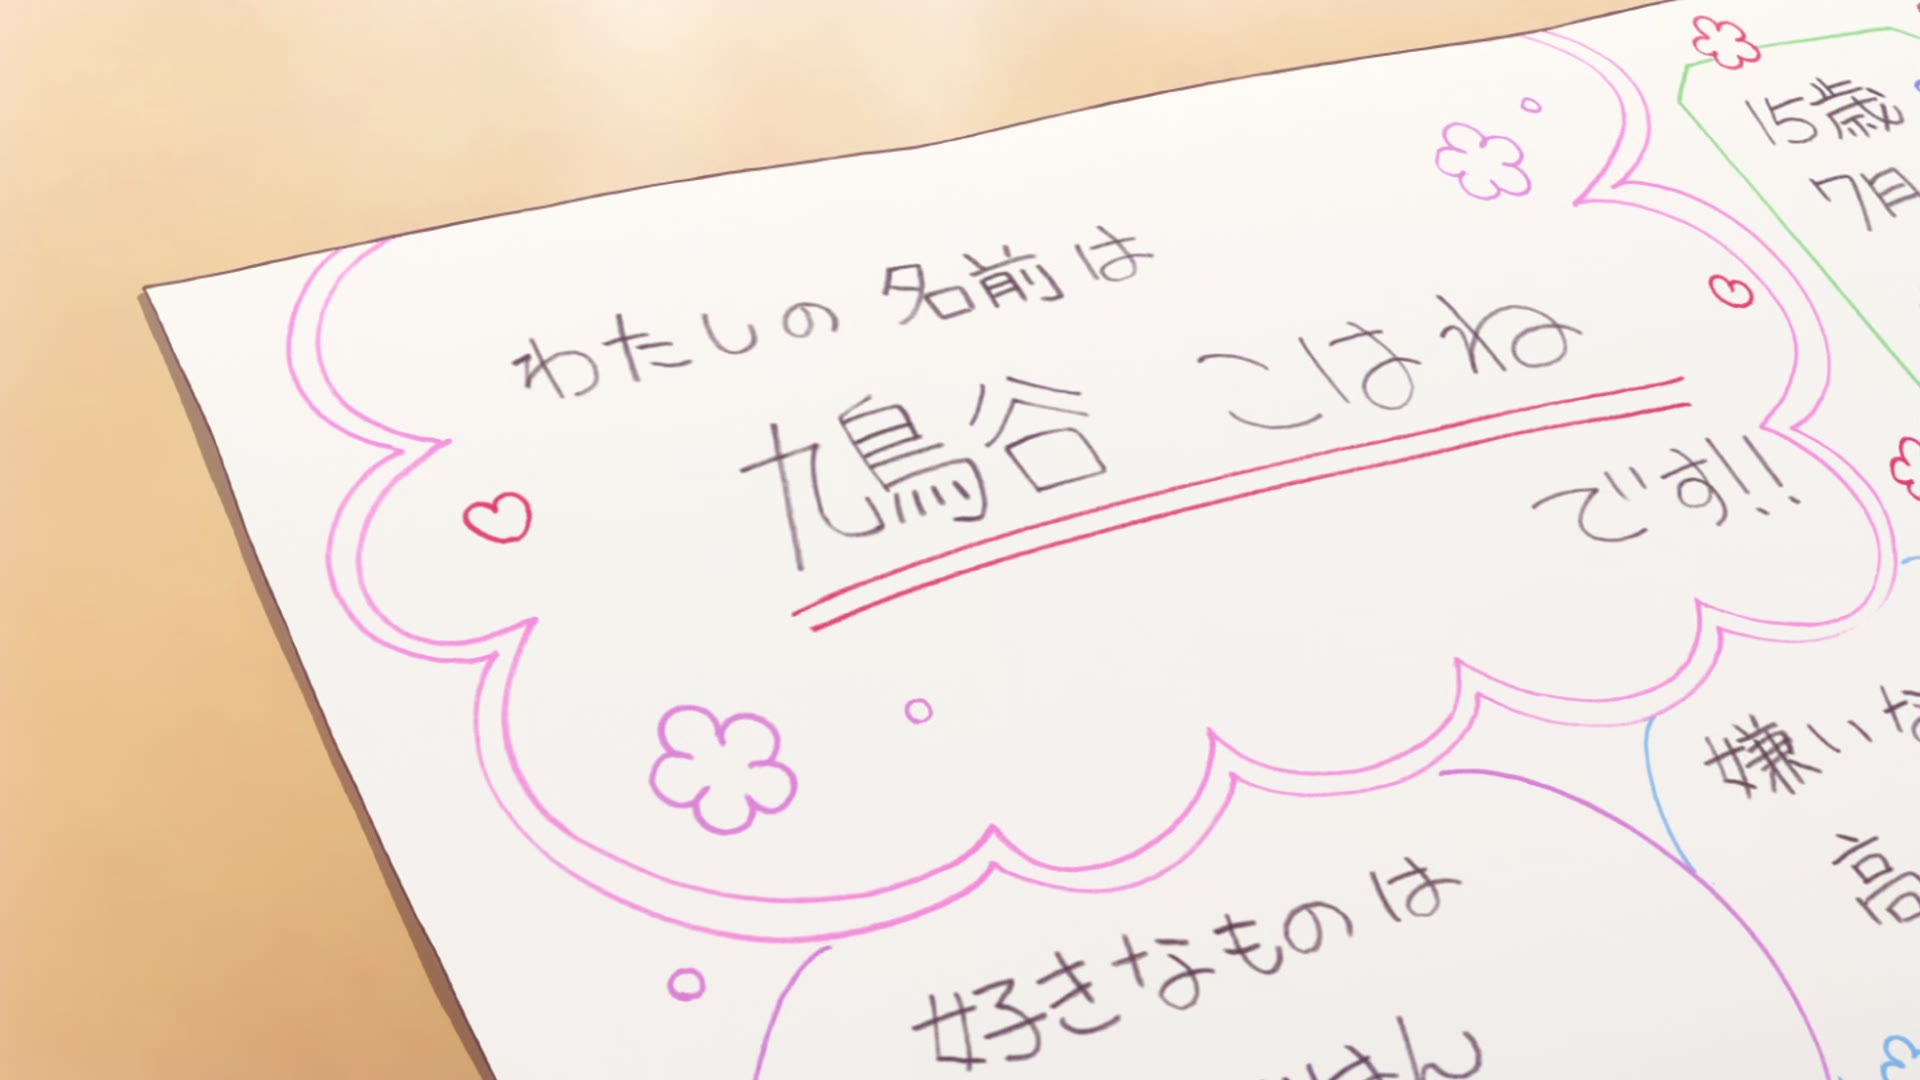 わたしの 名前は
鳩谷 こはね
です!!
15歳
7月
好きなものは
はん
嫌いな
高